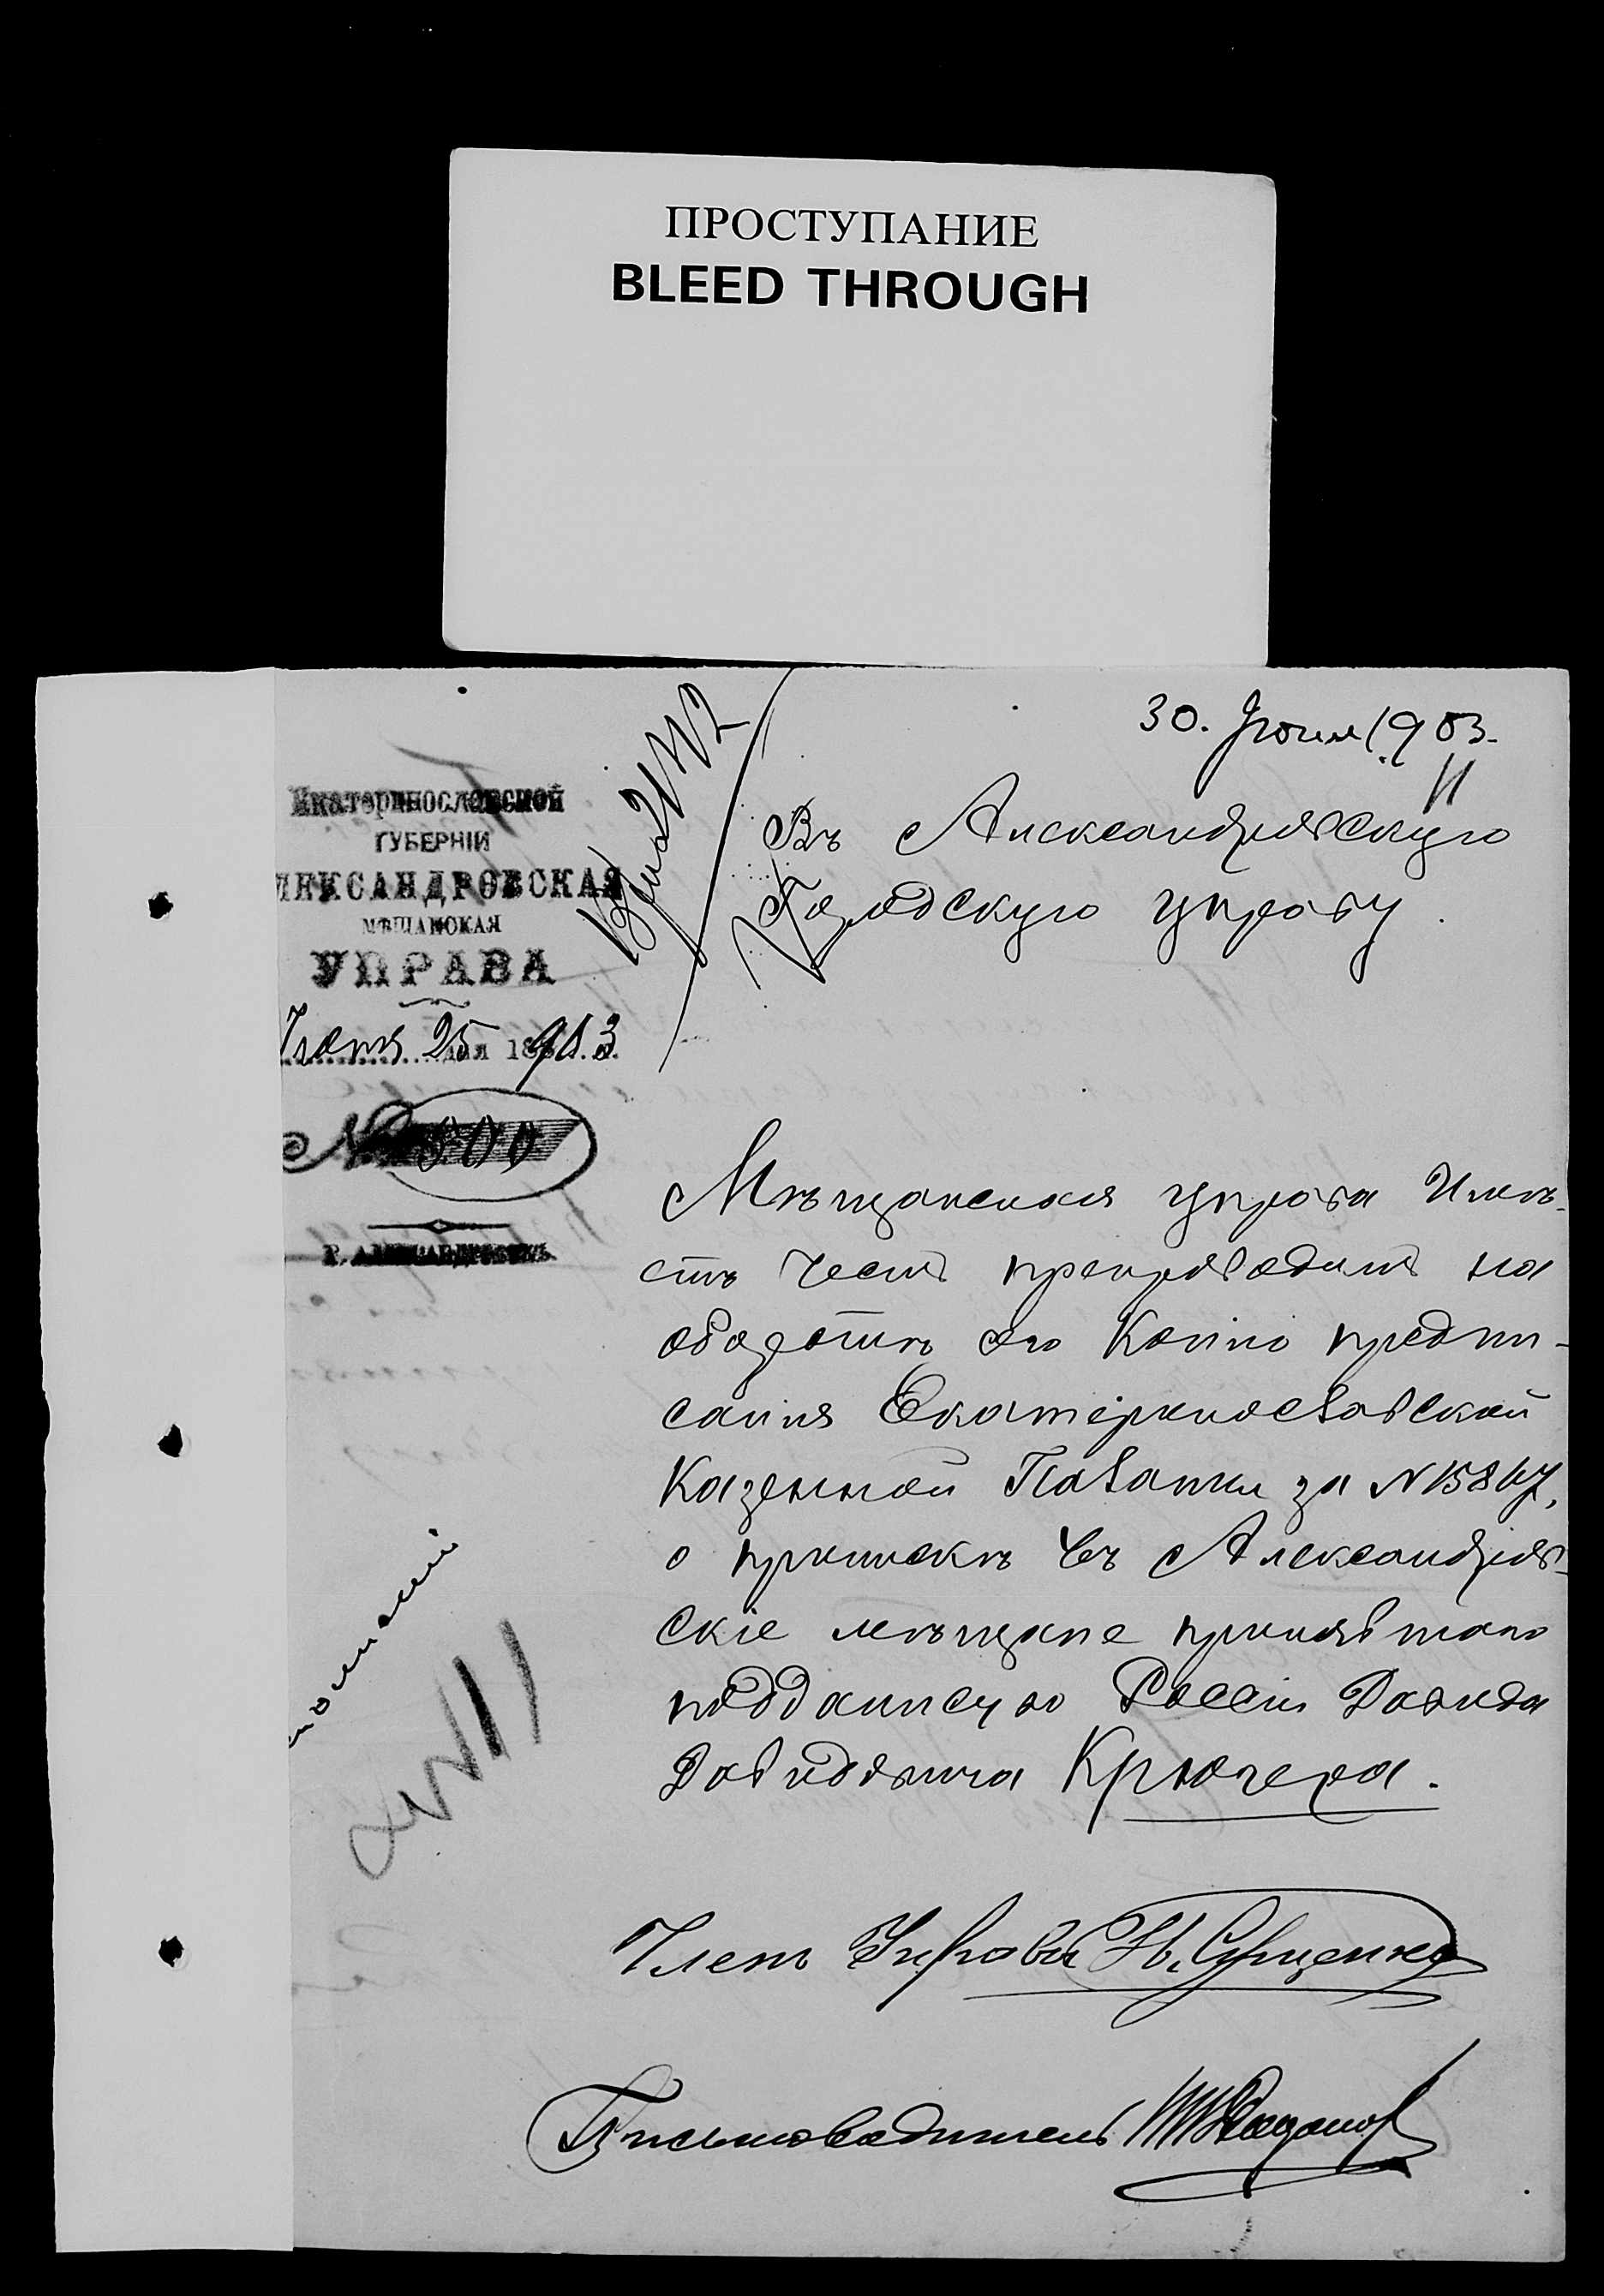 ПРОСТУПАНИЕ
BLEED THROUGH
30. Іюня 1903.
Екатеринославской
ГУБЕРНІИ
ЛЕКСАНДРОВСКАЯ
МѢЩАНСКАЯ
УПРАВА
Іюня 25 дня 1903
№ 800
Г. АЛЕКСАНДРОВСКЪ.
Въ Александровскую
Городскую управу.
Мѣщанская управа Имѣ-
етъ честь препроводить на
оборотѣ сего копію предпи-
санія Екатеринославской
Казенной Палаты за №15867,
о припискѣ въ Александров-
скіе мѣщане принявшаго
подданную Россіи Давида
Давидовича Крюгера.
Членъ Управы
Письмоводитель